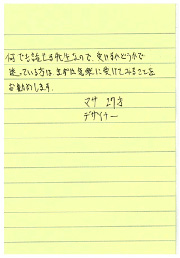 何でも話せる先生なので、受けようかどうかで
迷っている方は、まずは気楽に受けてみることを
お勧めします。
マサ 27才
デザイナー